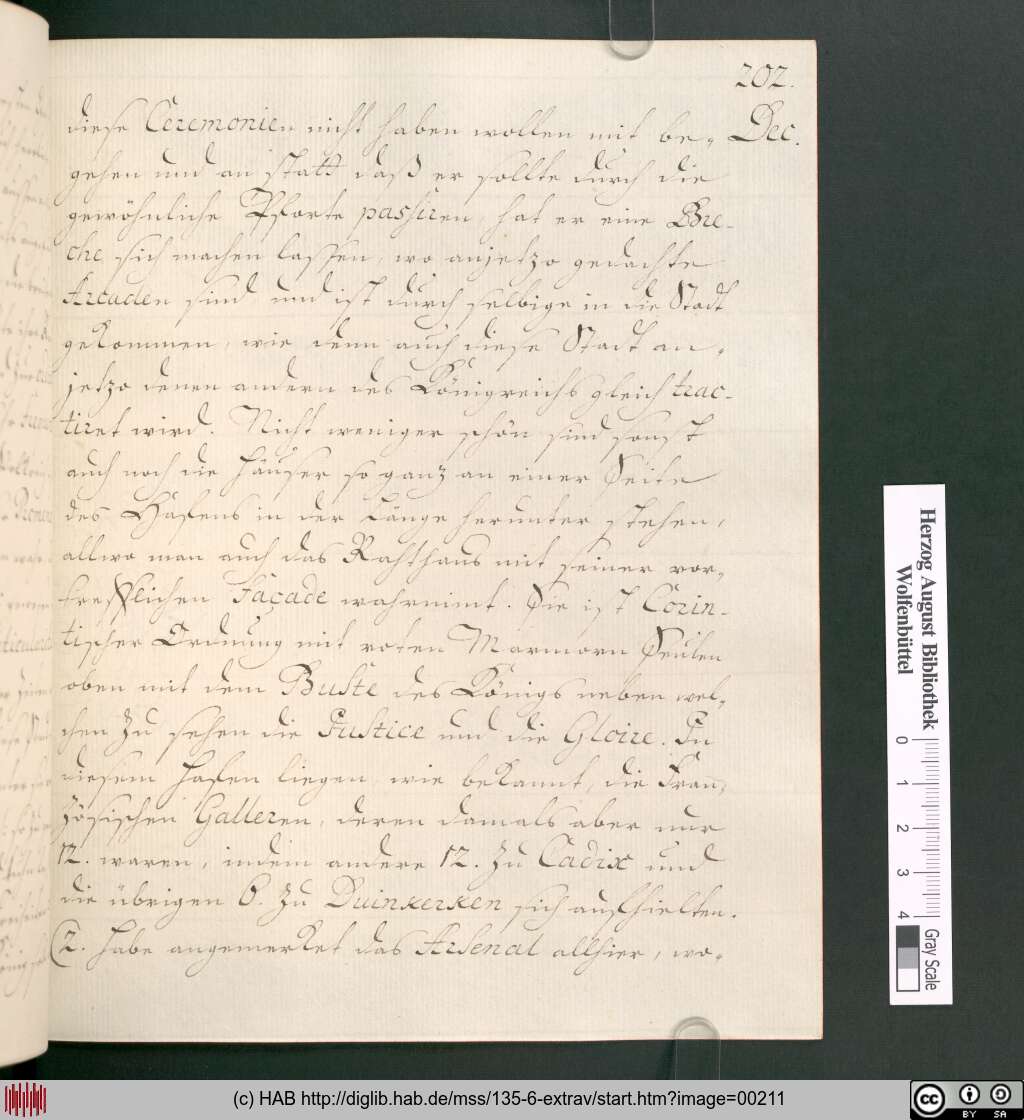 202.
Dec.
diese Ceremonien nicht haben wollen mit be-
gehen und an statt daß er sollte durch die
gewöhnliche Pforte passiren, hat er eine Bre-
che sich machen lassen, wo anjetzo gedachte
Arcaden sind und ist durch selbige in die Stadt
gekommen, wie denn auch diese Stadt an-
jetzo denen andern des Königreichs gleich trac-
tiret wird. Nicht weniger schön sind sonst
auch noch die Häuser so ganz an einer Seite
des Hafens in der Länge herunter stehen,
allwo man auch das Rahthaus mit seiner vor-
trefflichen Façade wahrnimt. Sie ist Corin-
tischer Ordnung mit roten Marmorn Seulen
oben mit dem Buste des Königs neben wel-
chen zu sehen die Justice und die Gloire. In
diesem Hafen liegen, wie bekannt, die Fran-
zösischen Galleren, deren damals aber nur
12. waren, indem andere 12. zu Cadix und
die übrigen 6. zu Duinkerken sich aufhielten.
(2. habe angemerket das Arsenal allhier, wo-
Herzog August Bibliothek
Wolfenbüttel
0 1 2 3 4
Gray Scale
(c) HAB http://diglib.hab.de/mss/135-6-extrav/start.htm?image=00211
cc BY SA